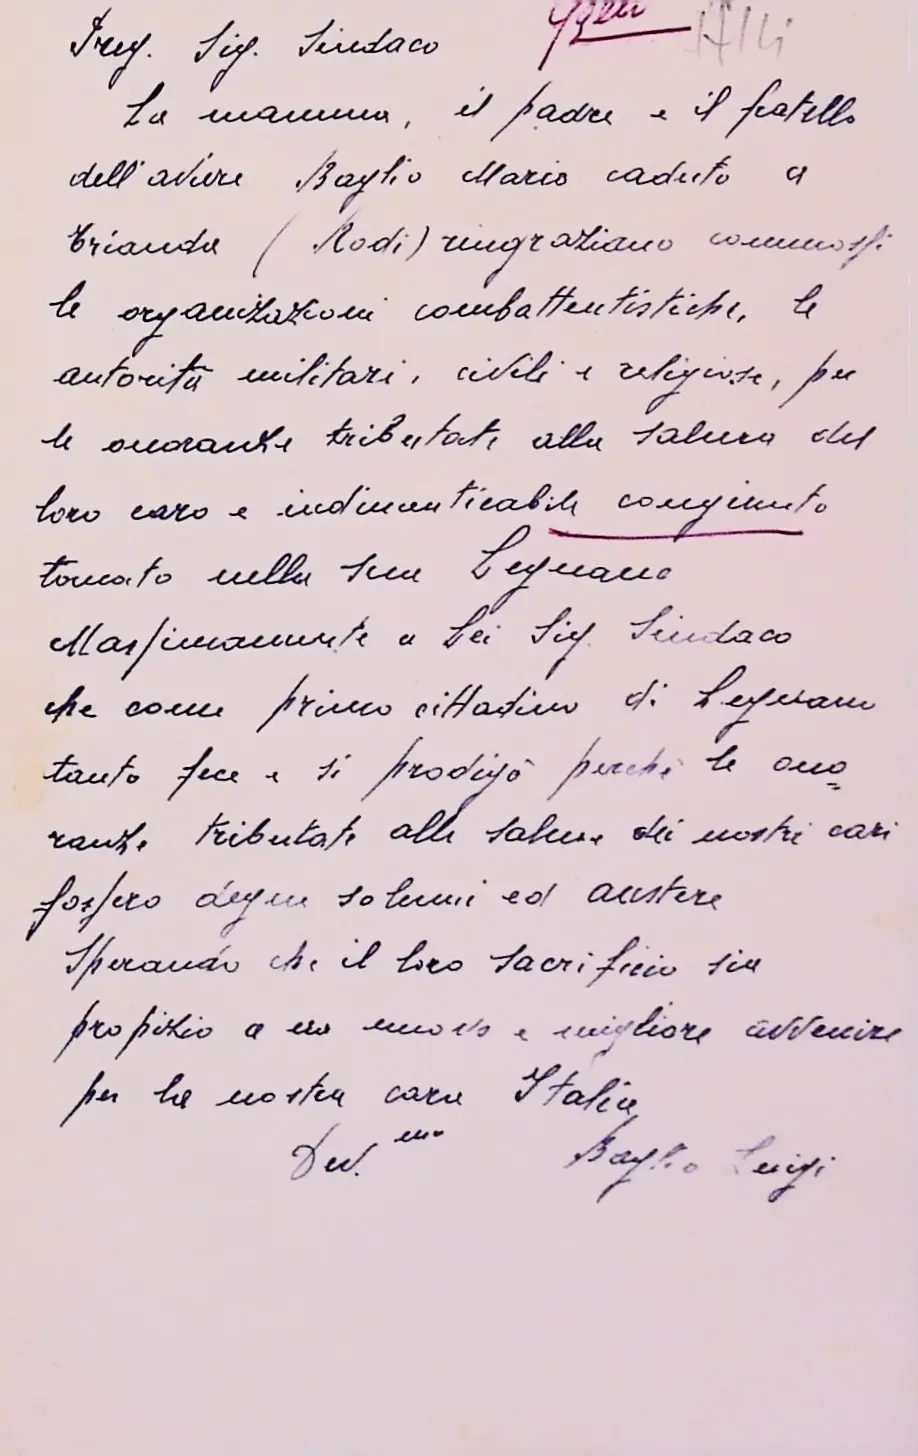 Preg. Sig. Sindaco
La mamma, il padre e il fratello
dell'aviere Baglio Mario caduto a
Trianda (Rodi) ringraziano commossi
le organizzazioni combattentistiche, le
autorità militari, civili e religiose, per
le onoranze tributate alla salma del
loro caro e indimenticabile congiunto
tornato nella sua Legnano
Massimamente a Lei Sig. Sindaco
che come primo cittadino di Legnano
tanto fece e si prodigò perché le ono=
ranze tributate alle salme dei nostri cari
fossero degne solenni ed austere
Sperando che il loro sacrificio sia
propizio a un nuovo e migliore avvenire
per la nostra cara Italia
Dev.mo Baglio Luigi